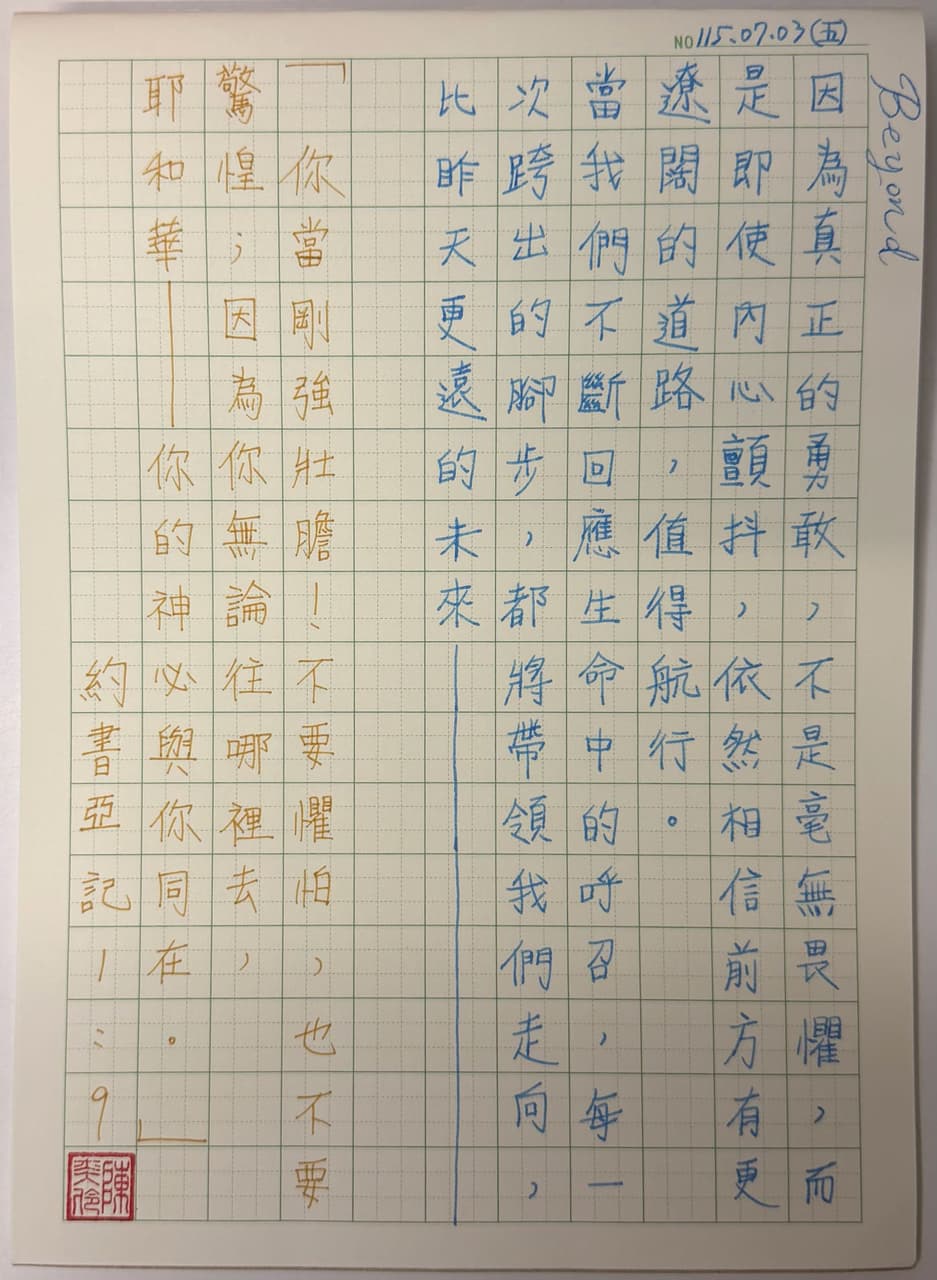 NO 115.07.03(五)
Beyond
因為真正的勇敢，不是毫無畏懼，而
是即使內心顫抖，依然相信前方有更
遼闊的道路，值得航行。
當我們不斷回應生命中的呼召，每一
次跨出的腳步，都將帶領我們走向，
比昨天更遠的未來——
「你當剛強壯膽！不要懼怕，也不要
驚惶；因為你無論往哪裡去，
耶和華——你的神必與你同在。」
約書亞記1：9